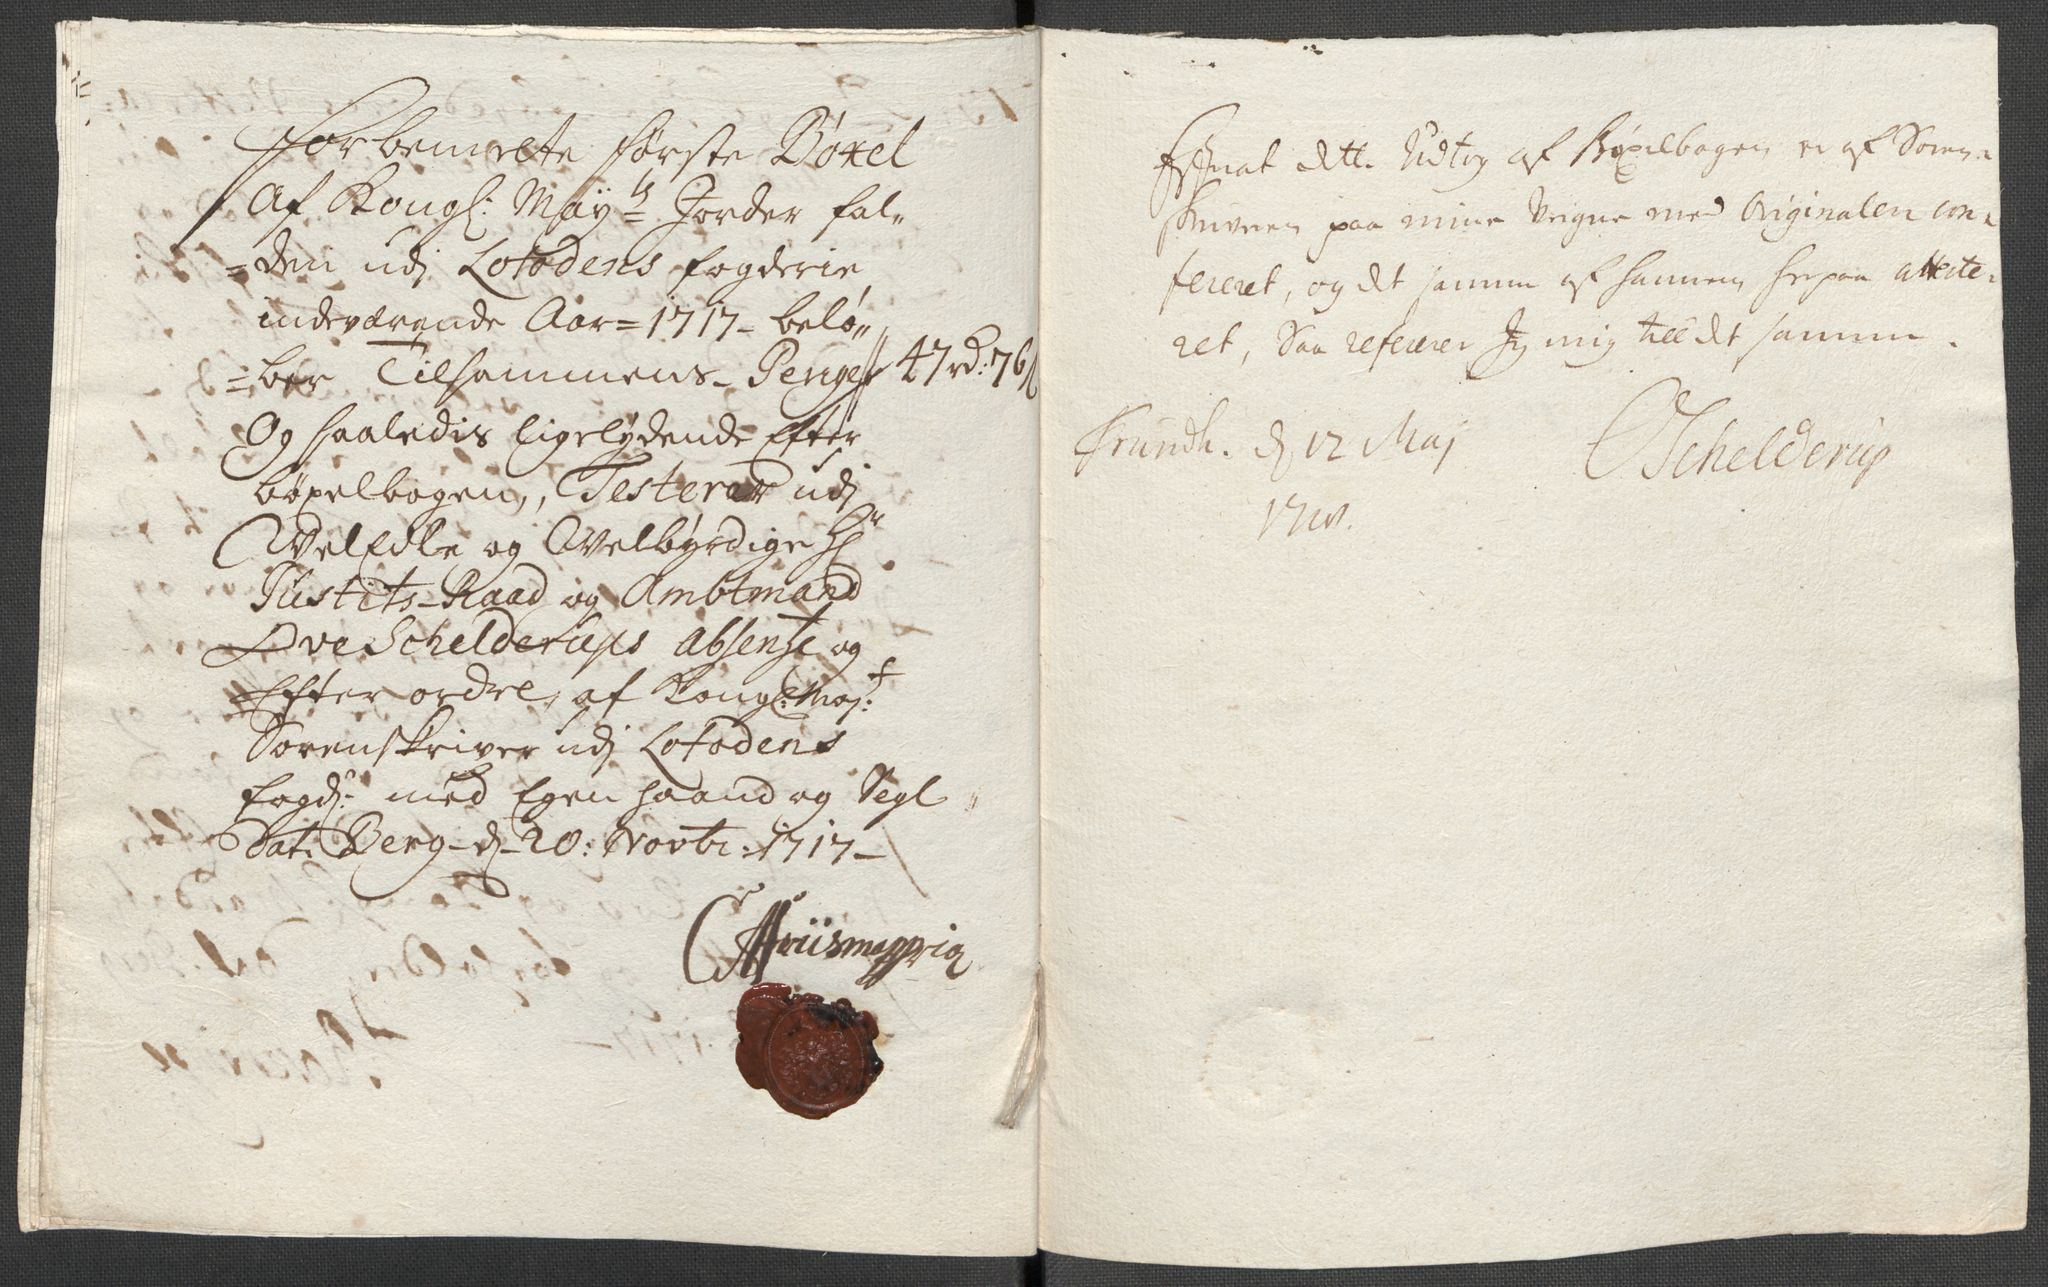 Forbemelte første Böxel
Af Kongl: Mayts Jorder fal„
=den udj Lofodens fogderie
indeværende Aar=1717- belø„
=ber Tilsammens- Penge 47 rd: 76 ß
Og saaledis ligelydende Efter
böxelbogen, Testerer udj
WelEdle og Welbyrdige Hr
Justits-Raad og Ambtmand
Ove Schelderups Absentze og
Efter ordre, af Kongl: Maj:t
Sorenskriver udj Lofodens
fogd: med Egen haand og Segl
Dat: Berg- d- 20: Novbr: 1717-
mappria
dette Udtog af Böxelbogen er af Soren-
skriveren paa mine Veigne med Originalen con-
fereret, og det samme af hannem herpaa atteste-
ret, Saa referer Jeg mig till det samme.
Trundh. d 12 Maj
OSchelderup